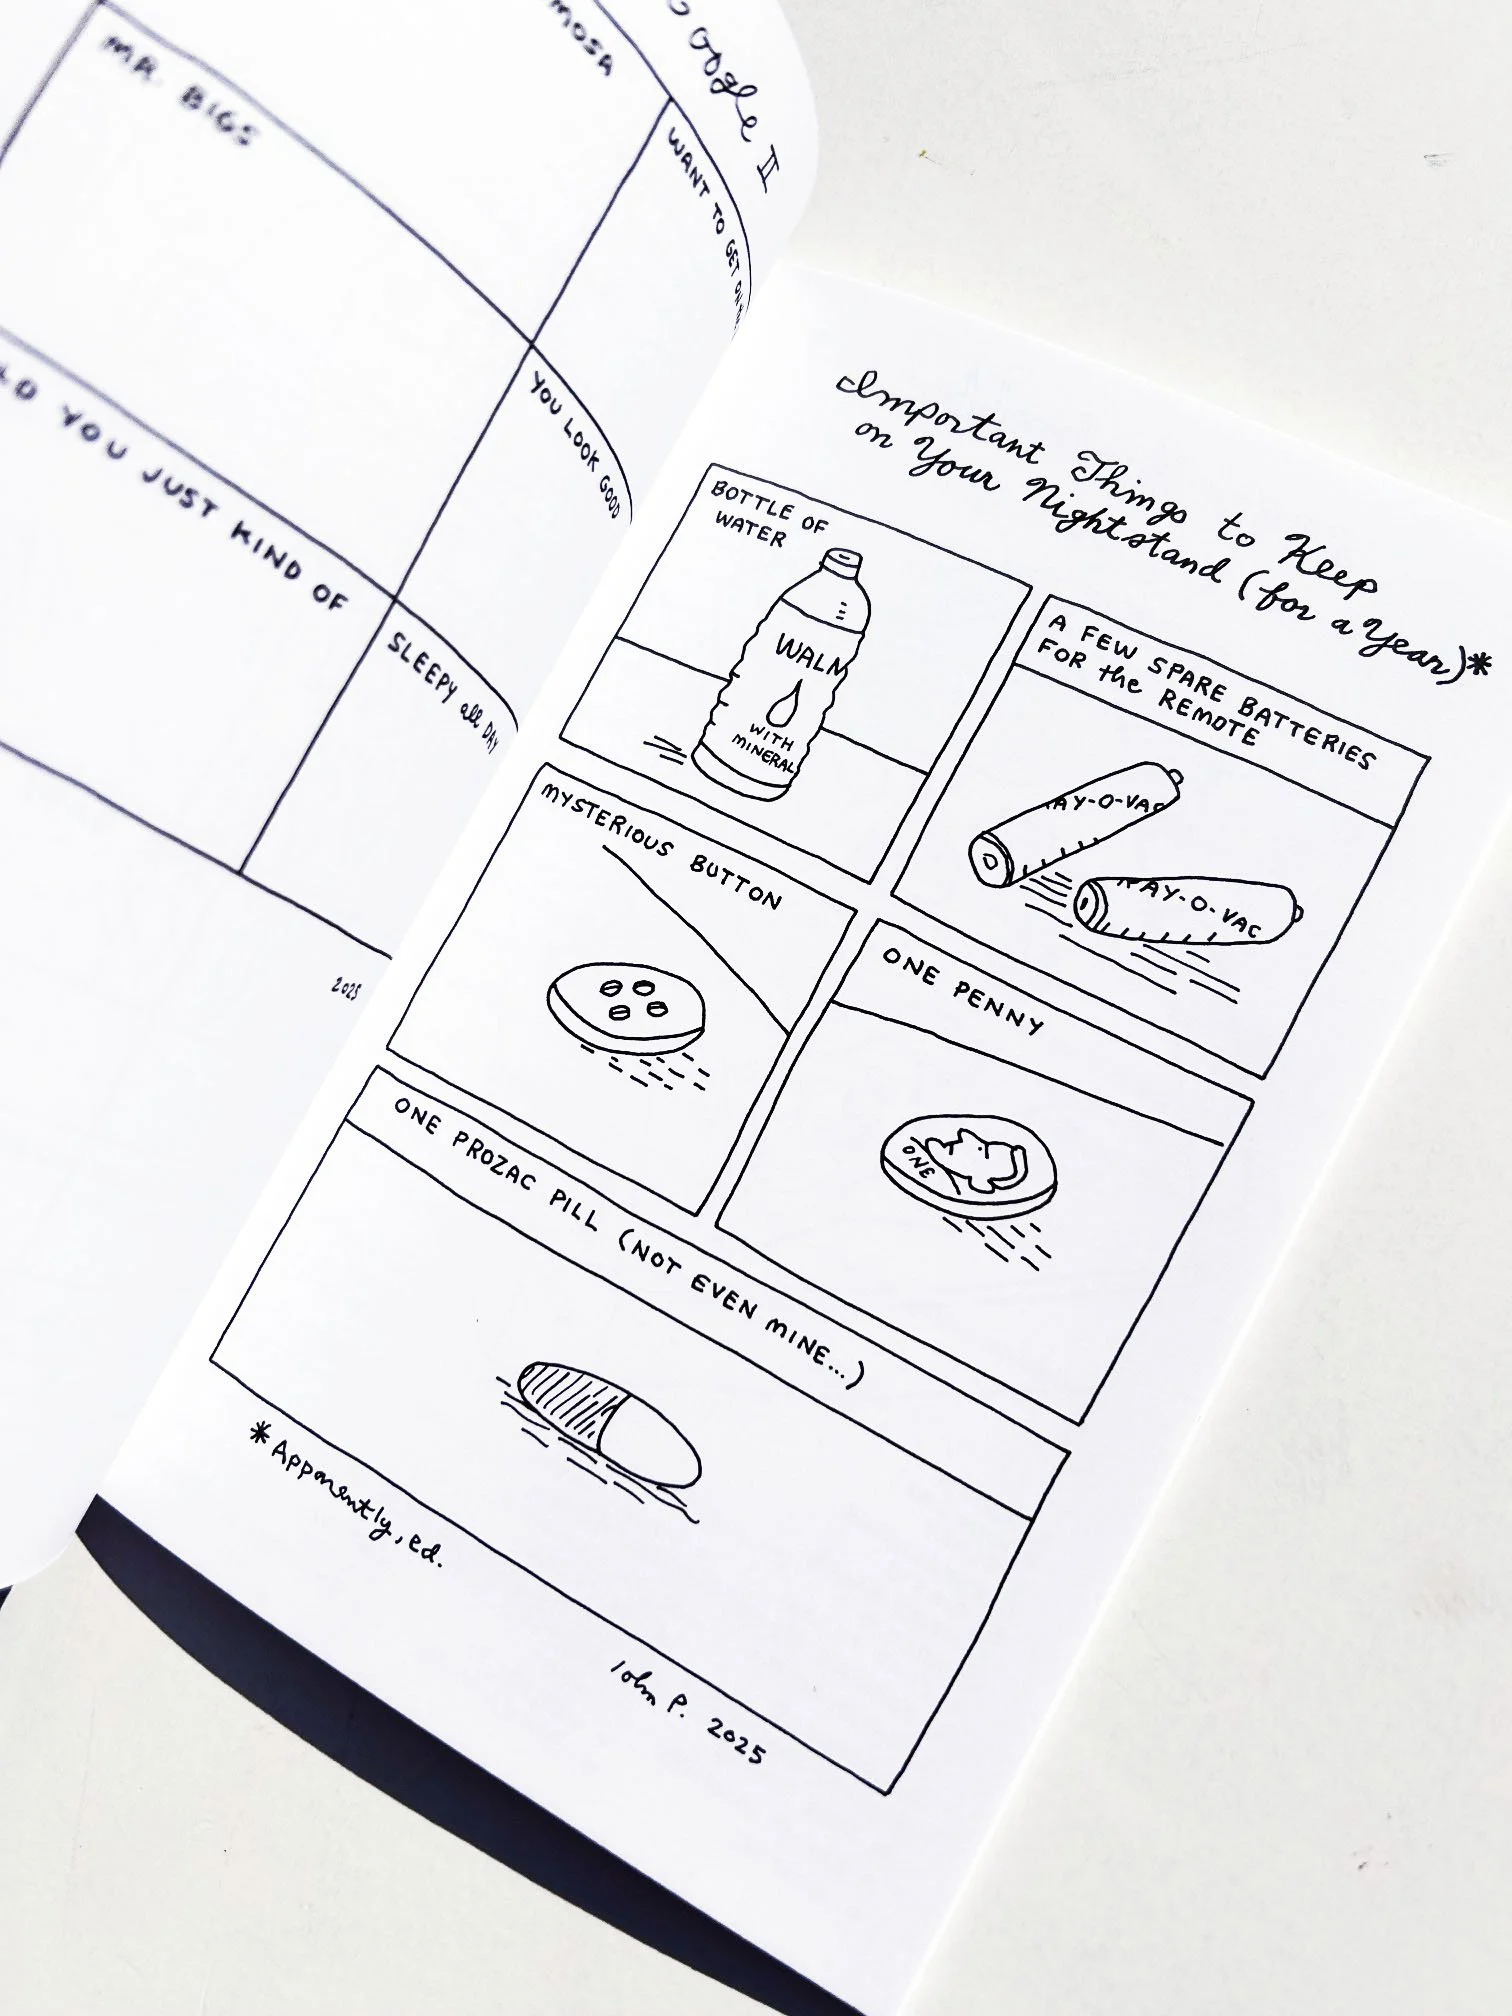 MR. BIGS
LD YOU JUST KIND OF
MOSA
oogle II
WANT TO GET
YOU LOOK GOOD
SLEEPY all DAY
2025
Important Things to Keep
on Your Nightstand (for a Year)*
BOTTLE OF
WATER
WALM
WITH
MINERAL
A FEW SPARE BATTERIES
FOR the REMOTE
AY-O-VAC
RAY-O-VAC
MYSTERIOUS BUTTON
ONE PENNY
ONE
ONE PROZAC PILL (NOT EVEN MINE...)
*Apparently, ed.
John P. 2025